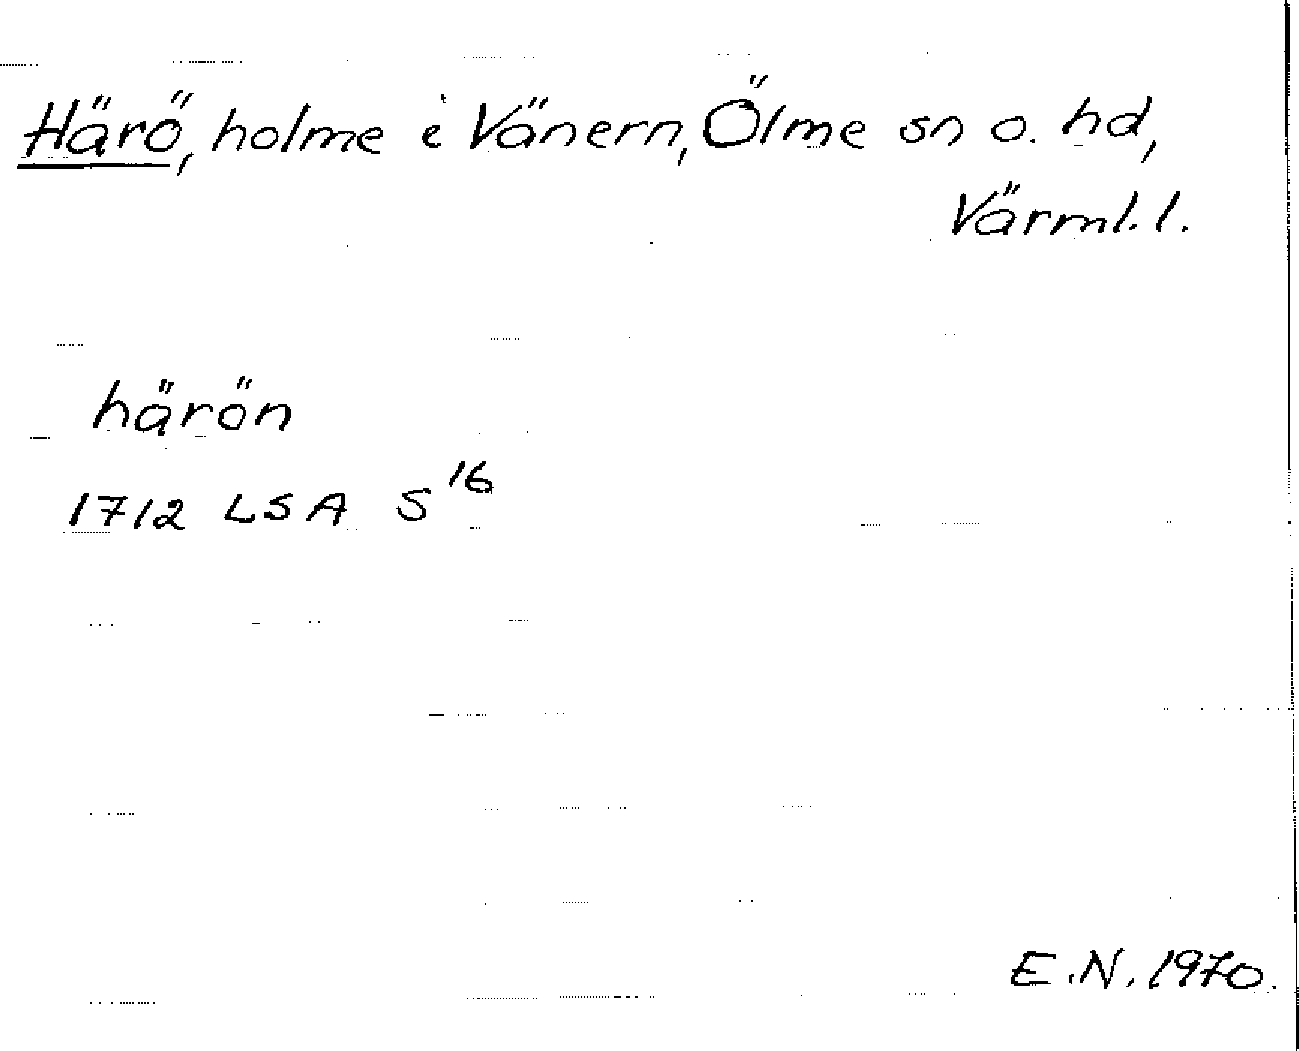 Härö, holme i Vänern, Ölme sn o. hd,
Värml. l.
härön
1712 LSA S 16
E.N. 1970.